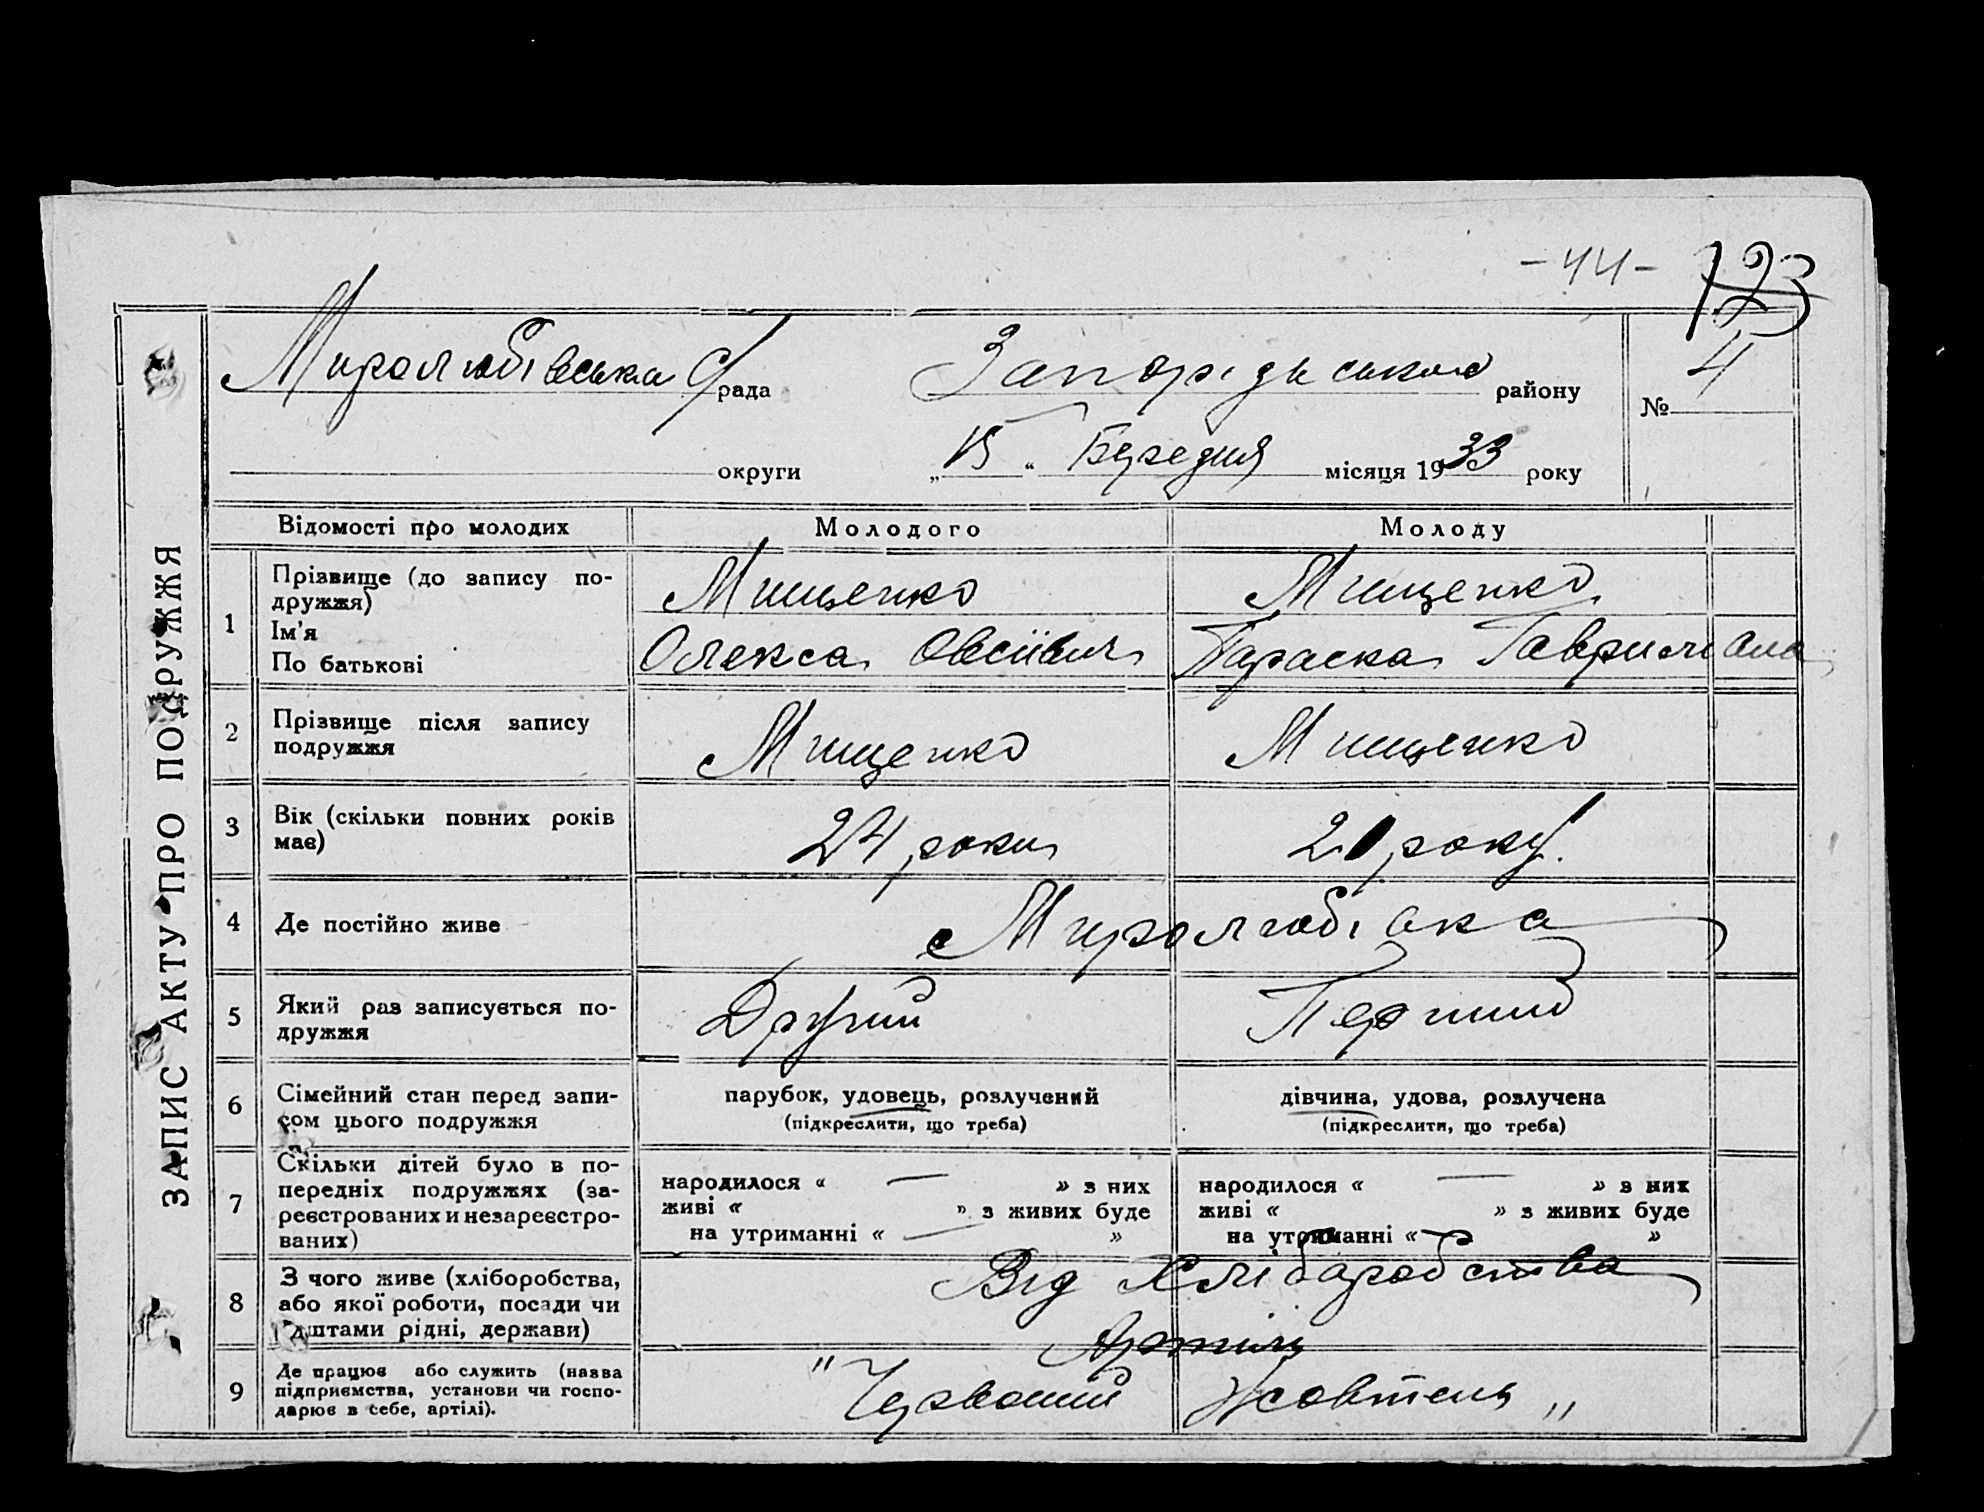 - 44 - 123
Миролюбівська С/рада Запорідьського району № 4
округи „15“ Березня місяця 1933 року
ЗАПИС АКТУ ПРО ПОДРУЖЖЯ
Відомості про молодих Молодого Молоду
1 Прізвище (до запису по-
дружжя) Мищенко Мищенко
Ім'я
По батькові Олекса Овсіївич Параска Гаврилівна
2 Прізвище після запису
подружжя Мищенко Мищенко
3 Вік (скільки повних років
має) 24 роки 21 року
4 Де постійно живе с Миролюбівка
5 Який раз записується по-
дружжя Другий Перший
6 Сімейний стан перед запи-
сом цього подружжя
парубок, удовець, розлучений
(підкреслити, що треба)
дівчина, удова, розлучена
(підкреслити, що треба)
7 Скільки дітей було в по-
передніх подружжях (за-
реєстрованих и незареєстро-
ваних)
народилося « — » з них
живі « » з живих буде
на утриманні « — »
народилося « — » з них
живі « » з живих буде
на утриманні « — »
8 З чого живе (хліборобства,
або якої роботи, посади чи
коштами рідні, держави)
Від Хліборобства
9 Де працює або служить (назва
підприємства, установи чи госпо-
дарює в себе, артілі).
Артіль
"Червоний Жовтень"